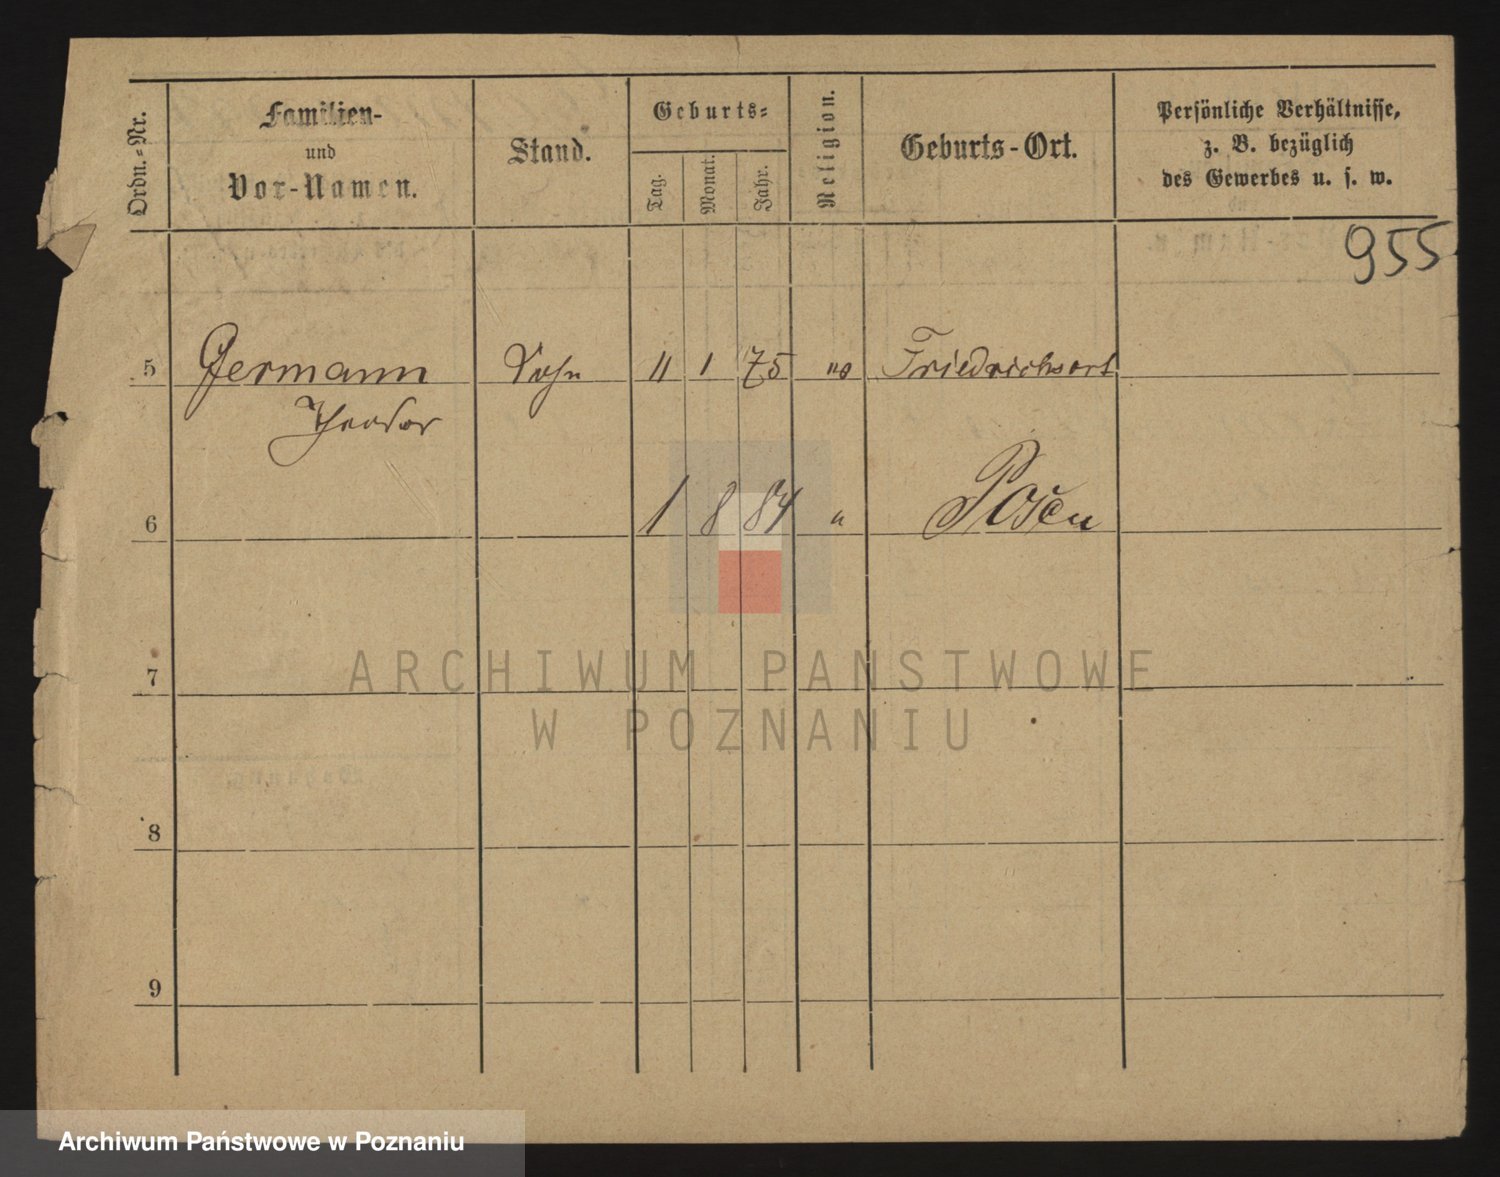 Ordn.-Nr.
Familien-
und
Vor-Namen.
Stand.
Geburts-
Tag.
Monat.
Jahr.
Religion.
Geburts-Ort.
Persönliche Verhältnisse,
z. B. bezüglich
des Gewerbes u. s. w.
955
5 Germann Sohn 11 1 75 Friedrichsort
Theodor
6 1 8 84 " Posen
7
8
9
ARCHIWUM PAŃSTWOWE
W POZNANIU
Archiwum Państwowe w Poznaniu